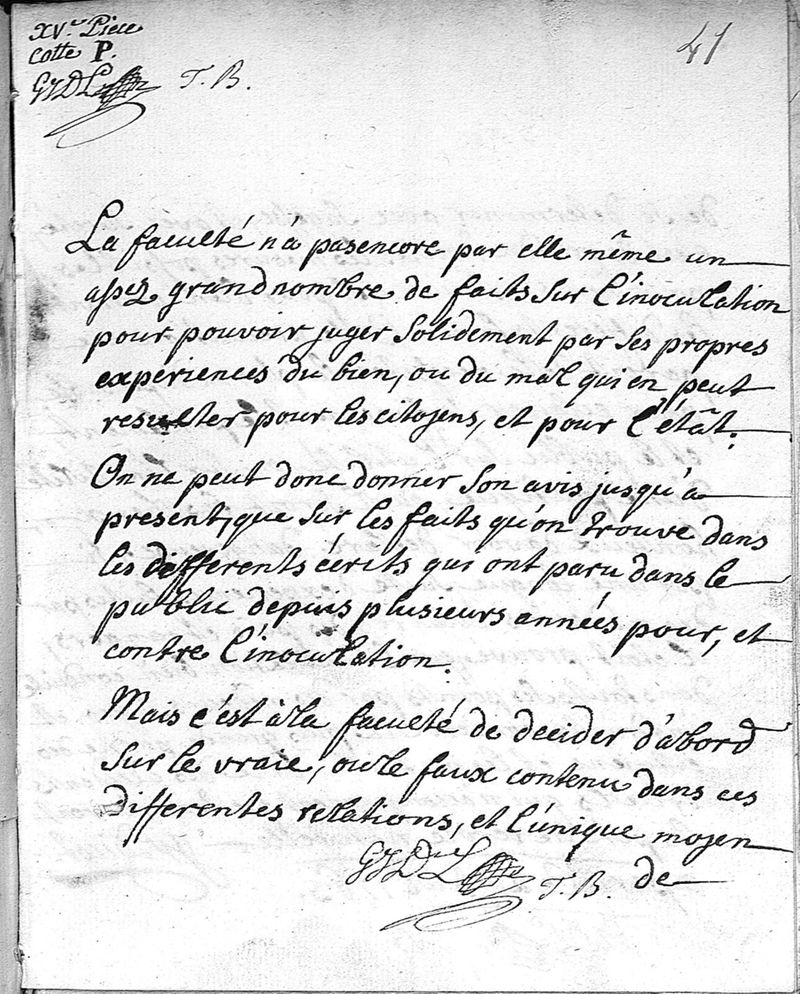 XVe Piece
Cotte P.
41
GJDL T.B.
La faculté n'a pas encore par elle même un
assez grand nombre de faits sur l'inoculation
pour pouvoir juger solidement par ses propres
experiences du bien, ou du mal qui en peut
resulter pour les citoyens, et pour l'étât.
On ne peut donc donner son avis jusqu'a
present, que sur les faits qu'on trouve dans
les differents écrits qui ont paru dans le
public depuis plusieurs années pour, et
contre l'inoculation.
Mais c'est à la faculté de decider d'abord
sur le vraie, ou le faux contenu dans ces
differentes relations, et l'unique moyen
GJDL T.B. de